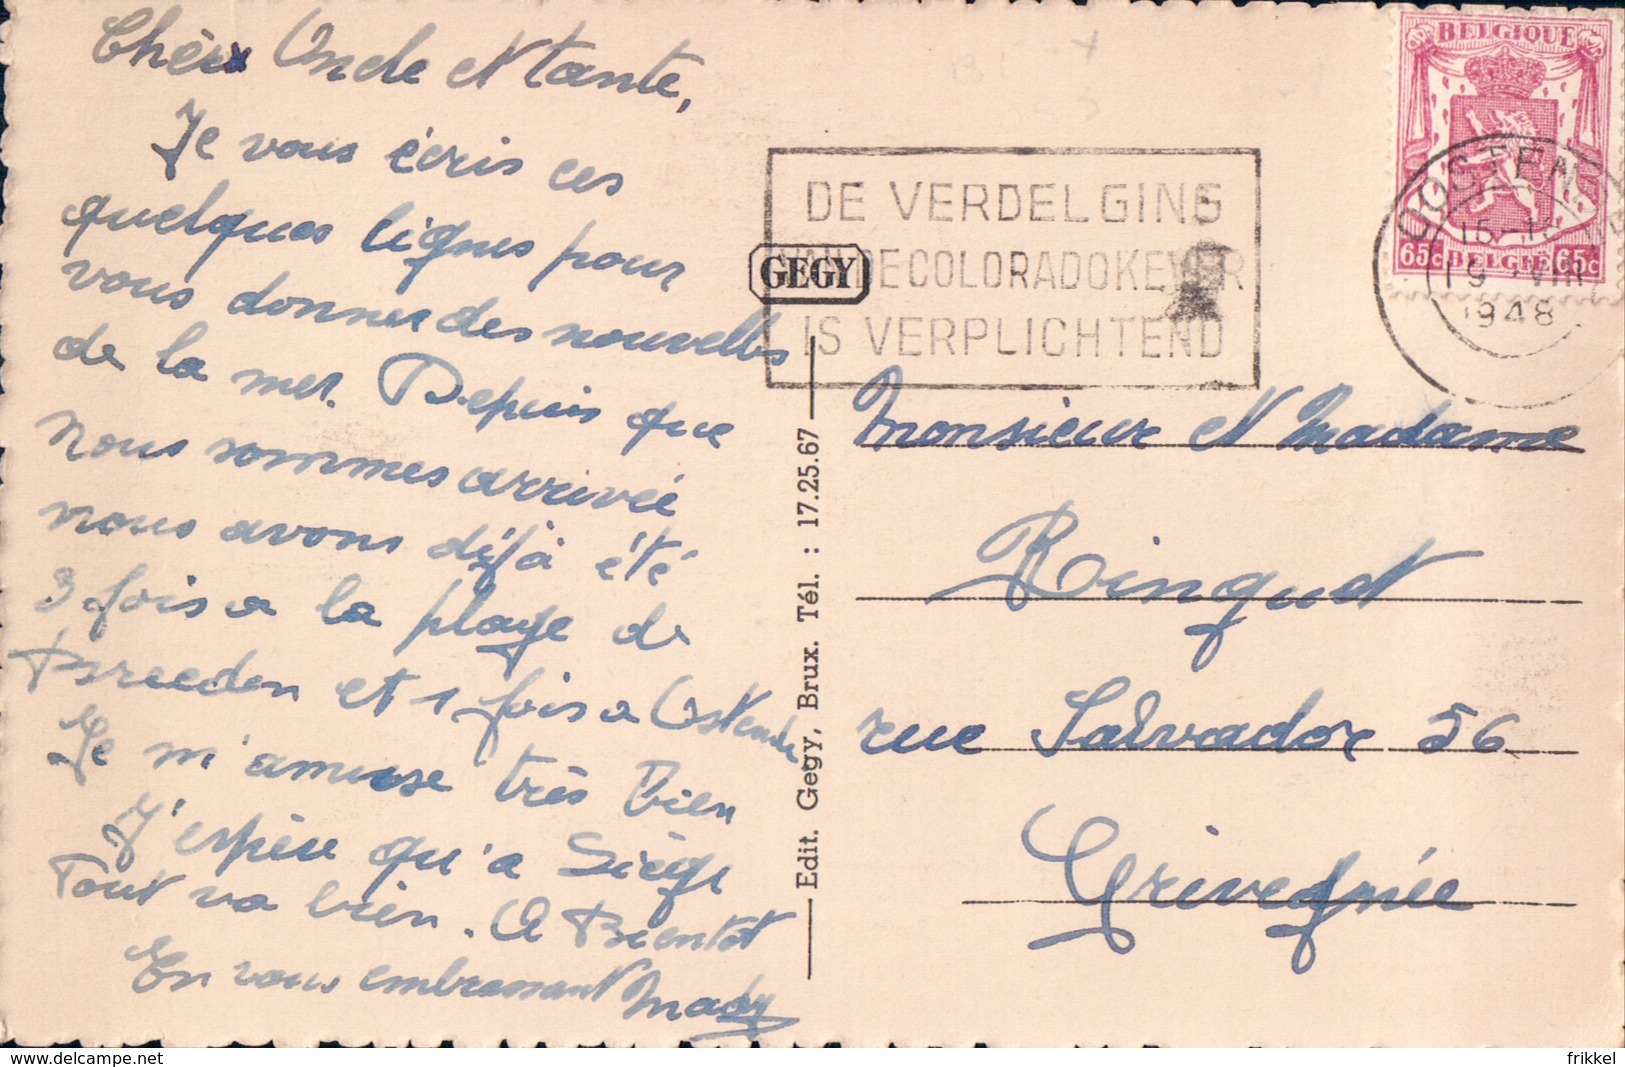 Chers Oncle et tante,
Je vous écris ces
quelques lignes pour
vous donner des nouvelles
de la mer. Depuis que
nous sommes arrivée
nous avons déjà été
3 fois a la plage de
Breeden et 1 fois a Ostende
Je m'amuse très bien
J'espère qu'a Siège
Tout va bien. A Bientot
En vous embrassant Mady
GEGY
Edit. Gegy, Brux. Tél. : 17.25.67
BELGIQUE
65c BELGIE 65c
OOSTEN
15-1
19 VIII
1948
DE VERDELGING
DE COLORADOKEVER
IS VERPLICHTEND
Monsieur et Madame
Ringuet
rue Salvador 56
Grivegnée
delcampe.net
frikkel